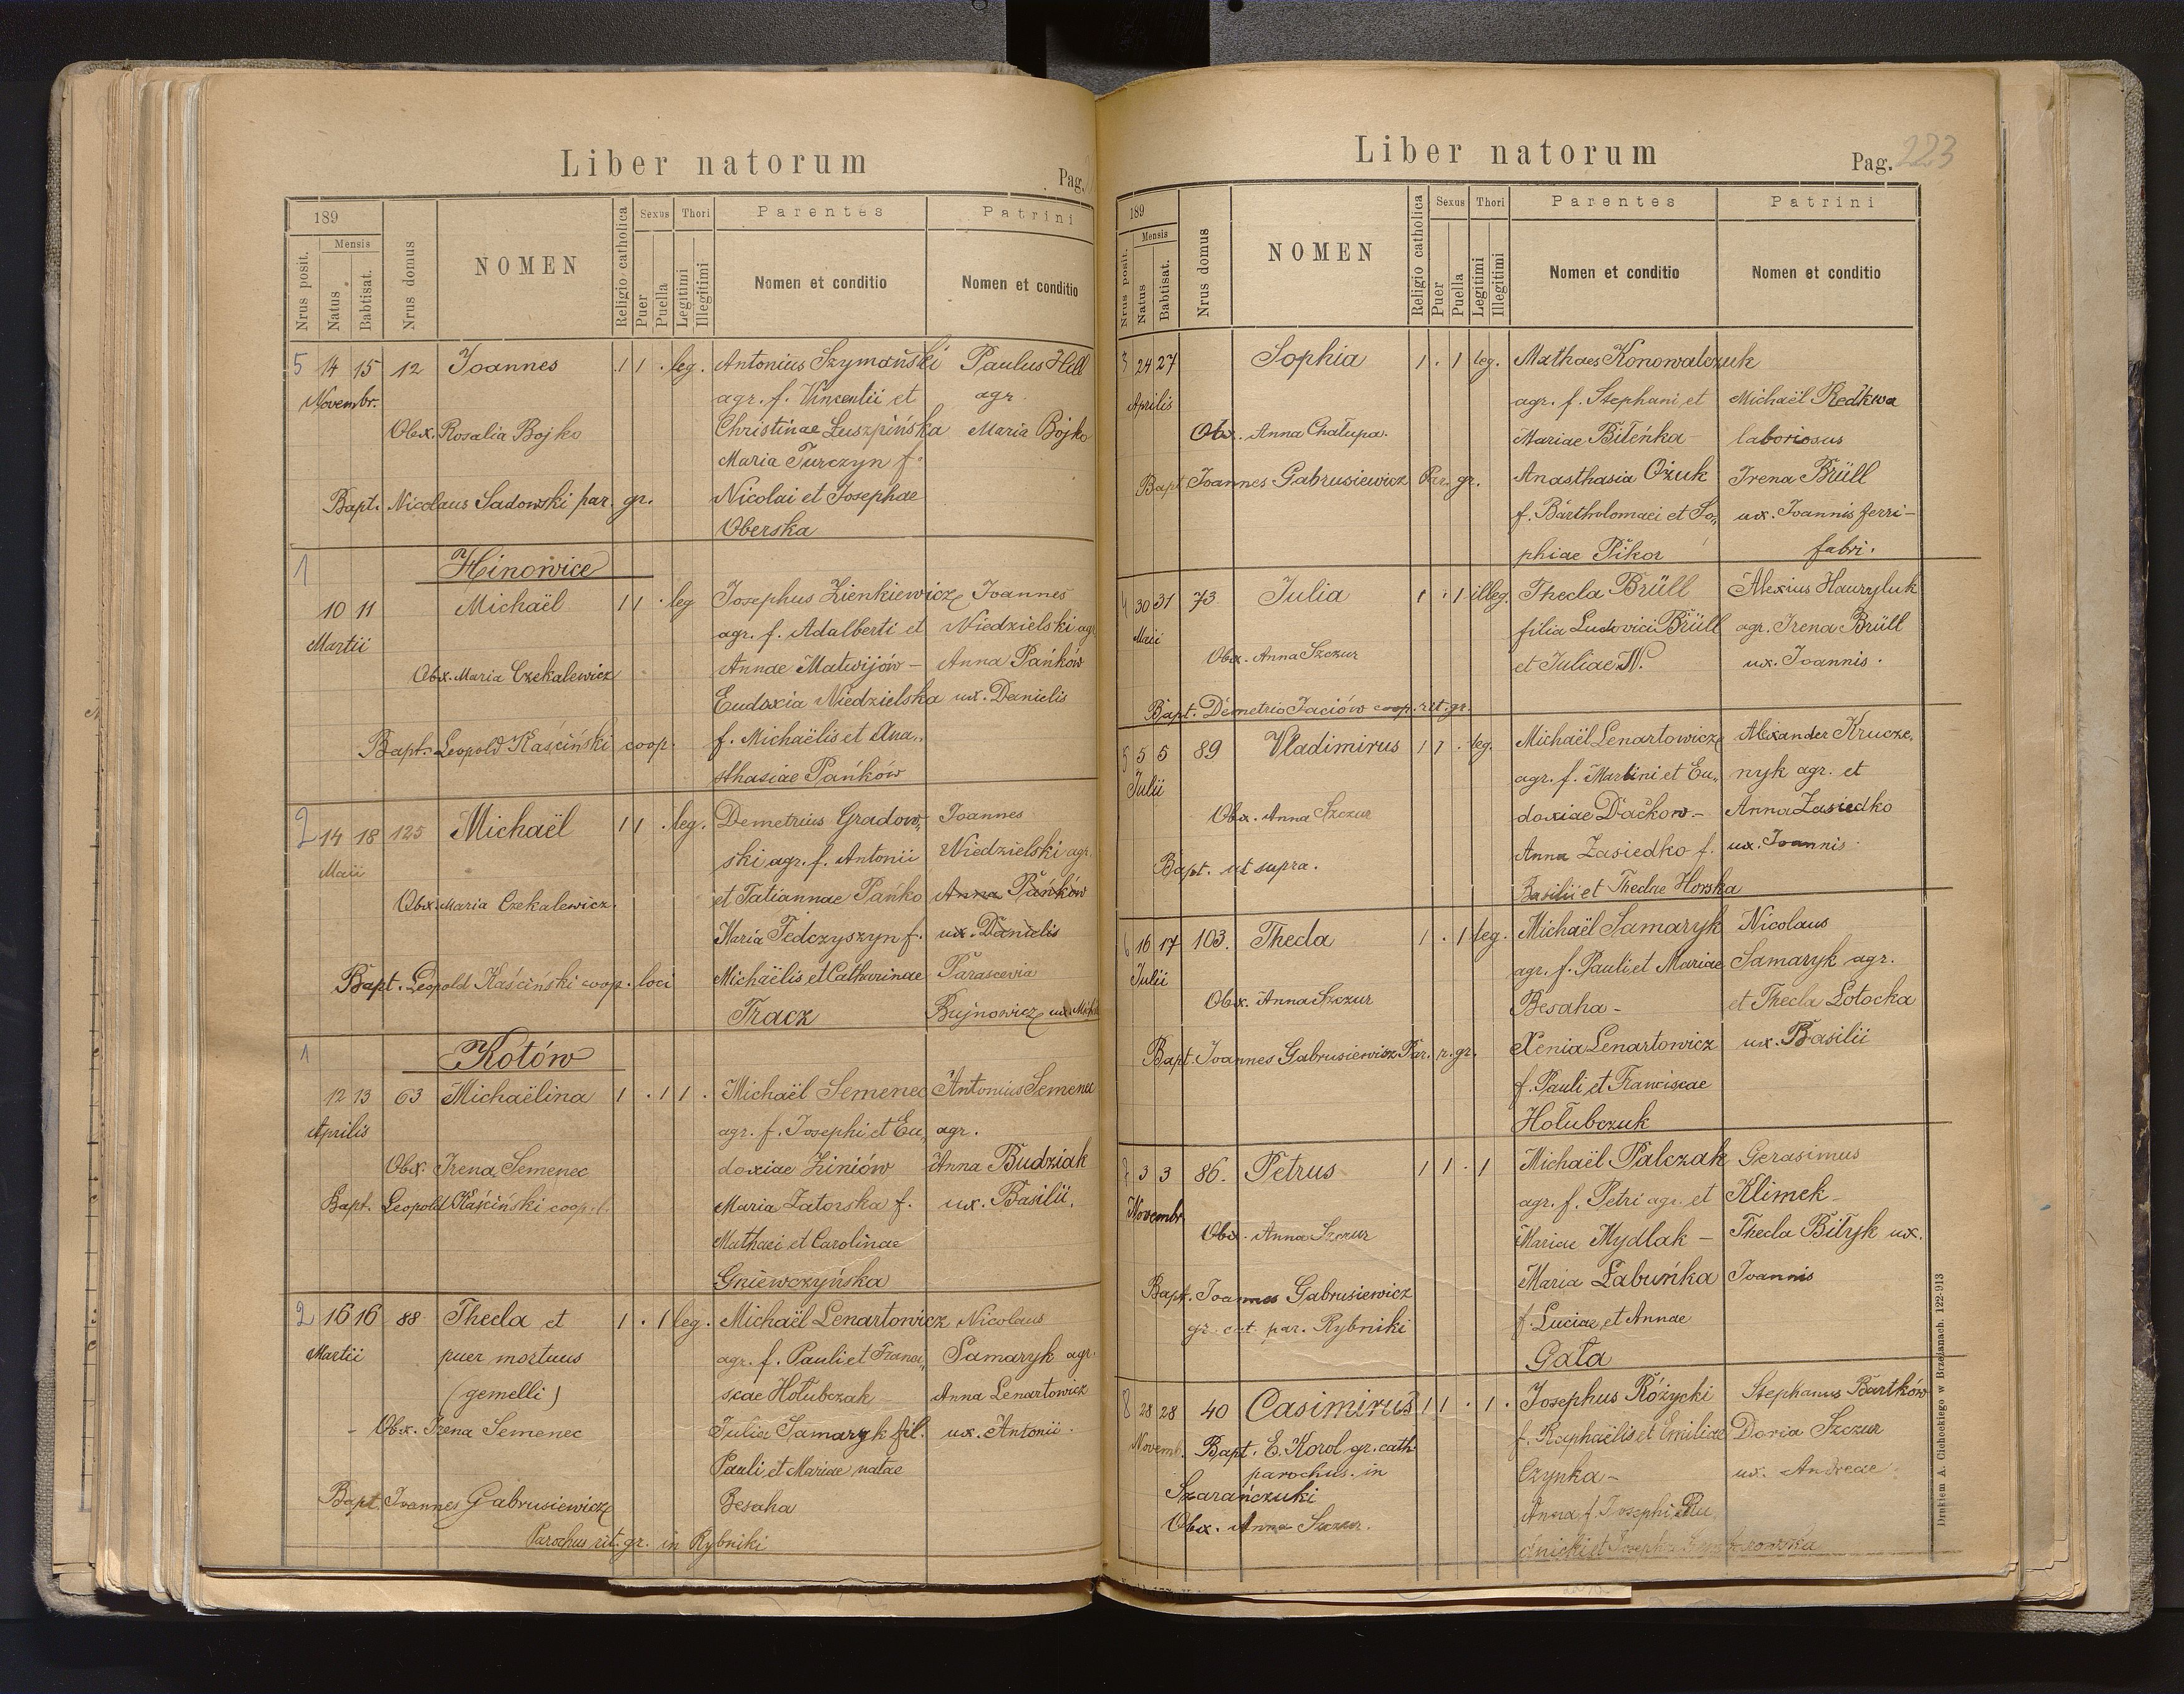 Liber natorum
Pag.
189
Nrus posit.
Mensis
Natus
Babtisat.
Nrus domus
NOMEN
Religio catholica
Sexus
Puer
Puella
Thori
Legitimi
Illegitimi
Parentes
Nomen et conditio
Patrini
Nomen et conditio
5 14 15 12 Joannes 1 1 . leg. Antonius Szymański Paulus Hell
Novembr. agr. f. Vincentii et agr.
Obx. Rosalia Bojko Christinae Łuszpińska Maria Bojko
Maria Turczyn f.
Bapt. Nicolaus Sadowski par. gr. Nicolai et Josephae
Oberska
1 Hinowice
10 11 Michaël 1 1 . leg Josephus Zienkiewicz Joannes
Martii agr. f. Adalberti et Niedzielski agr
Obx. Maria Czekalewicz Annae Matwijów – Anna Pańków
Eudoxia Niedzielska ux. Danielis
Bapt. Leopold Kaściński coop. f. Michaëlis et Ana„
sthasiae Pańków
2 14 18 125 Michaël 1 1 . leg. Demetrius Gradow„ Joannes
Maii ski agr. f. Antonii Niedzielski agr.
Obx. Maria Czekalewicz. et Tatiannae Pańko Anna Pańków
Maria Fedczyszyn f. ux. Danielis
Bapt. Leopold Kaściński coop. loci Michaëlis et Catharinae Parascevia
Tracz Bujnowicz ux. Mich
1 Kotów
12 13 63 Michaëlina 1 . 1 1 . Michaël Semenec Antonius Semenec
Aprilis agr. f. Josephi et Eu„ agr.
Obx. Irena Semenec doxiae Ziniów Anna Budziak
Bapt. Leopold Kaściński coop. l. Maria Zatorska f. ux. Basilii.
Mathaei et Carolinae
Gniewczyńska
2 16 16 88 Thecla et 1 . 1 leg. Michaël Lenartowicz Nicolaus
Martii puer mortuus agr. f. Pauli et Franci„ Samaryk agr.
(gemelli) scae Hołubczak Anna Lenartowicz
- Obx. Irena Semenec Julia Samaryk fil. ux. Antonii.
Pauli et Mariae natae
Bapt. Joannes Gabrusiewicz Besaha
Parochus rit. gr. in Rybniki
Liber natorum
Pag. 223
189
Nrus posit.
Mensis
Natus
Babtisat.
Nrus domus
NOMEN
Religio catholica
Sexus
Puer
Puella
Thori
Legitimi
Illegitimi
Parentes
Nomen et conditio
Patrini
Nomen et conditio
3 24 27 Sophia 1 . 1 leg. Mathaes Konowalczuk
Aprilis agr. f. Stephani et Michaël Redkwa
Obx. Anna Chałupa. Mariae Bileńka – laboriosus
Bapt Joannes Gabrusiewicz Par. gr. Anasthasia Ożuk Irena Brüll
f. Bartholomaei et So„ ux. Joannis ferri–
phiae Pikor fabri.
4 30 31 73 Julia 1 . 1 illeg. Thecla Brüll Alexius Hawryluk
Maii filia Ludovici Brüll agr. Irena Brüll
Obx. Anna Szczur et Juliae N. ux. Joannis.
Bapt. Demetrio Jaciów coop. rit. gr.
5 5 5 89 Vladimirus 1 1 . leg. Michaël Lenartowicz Alexander Krucze„
Julii agr. f. Martini et Eu„ nyk agr. et
Obx. Anna Szczur doxiae Dackow – Anna Zasiedko
Anna Zasiedko f. ux. Joannis.
Bapt. ut supra. Basilii et Theclae Horska
6 16 17 103. Thecla 1 . 1 leg. Michaël Samaryk Nicolaus
Julii agr. f. Pauli et Mariae Samaryk agr.
Obx. Anna Szczur Besaha - et Thecla Łotocka
Bapt. Joannes Gabrusiewicz Par. r. gr. Xenia Lenartowicz ux. Basilii
f. Pauli et Franciscae
Hołubczuk
7 3 3 86. Petrus 1 1 . 1 Michaël Palczak Gerasimus
Novembr agr. f. Petri agr. et Klimek –
Obx. Anna Szczur Mariae Mydlak – Thecla Biłyk ux.
Maria Łabuńka Joannis
Bapt. Joannes Gabrusiewicz f. Luciae et Annae
gr. cat. par. Rybniki Gała
8 28 28 40 Casimirus 1 1 . 1 . Josephus Różycki Stephanus Bartków
Novemb. Bapt. E. Korol gr. cath f. Raphaëlis et Emiliae Daria Szczur
parochus. in Czynka – ux. Andreae.
Szarańczuki
Obx. Anna Szczur. Anna f. Josephi Ru„
dnicki et
Drukiem A. Cichockiego w Brzeżanach. 122-913